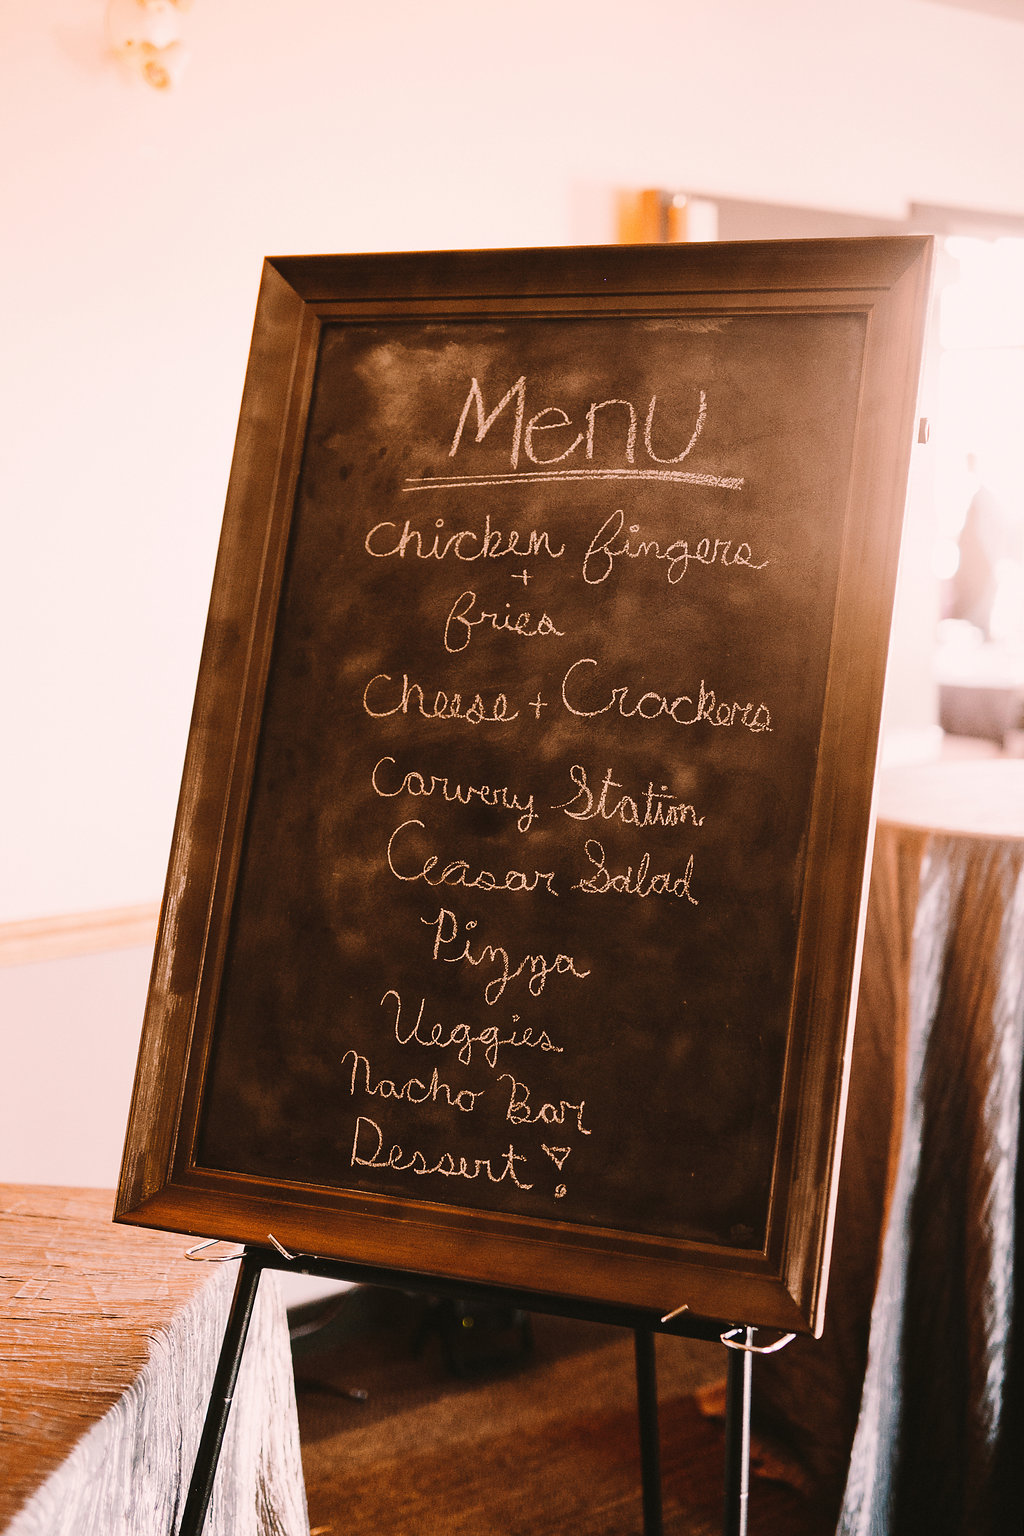 Menu
Chicken fingers
+
fries
Cheese + Crackers
Carvery Station
Ceasar Salad
Pizza
Veggies
Nacho Bar
Dessert!